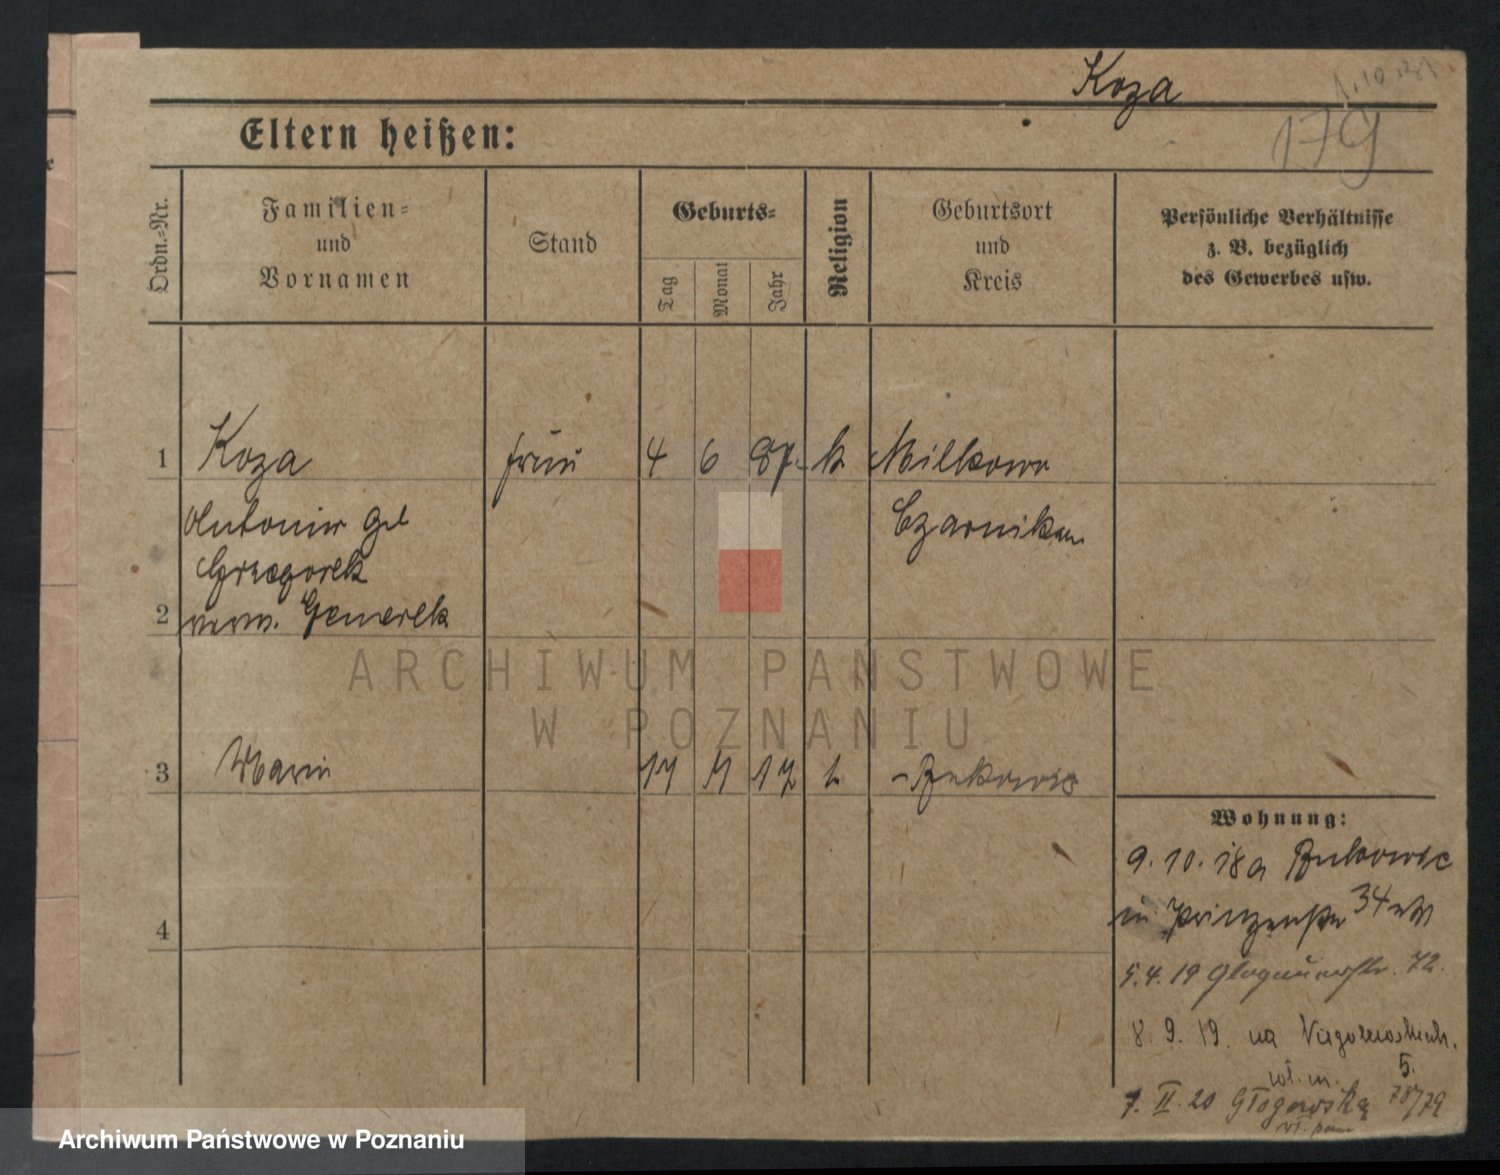 Koza
1.10.
179
Eltern heißen:
Ordn.-Nr.
Familien-
und
Vornamen
Stand
Geburts-
Tag
Monat
Jahr
Religion
Geburtsort
und
Kreis
Persönliche Verhältnisse
z. B. bezüglich
des Gewerbes usw.
1 Koza frau 4 6 87. k Milkowo
Antonie geb
Czarnikau
Grzegorek
2 verw.
ARCHIWUM PAŃSTWOWE
W POZNANIU
3 Maria 17 k Bukowiec
Wohnung:
9.10.18 a Bukowiec
in Prinzenstr 34
4
5.4.19 Glogauerstr. 72.
8. 9. 19. na
5.
wł. m.
7. II. 20 Głogowska 78/79
Archiwum Państwowe w Poznaniu